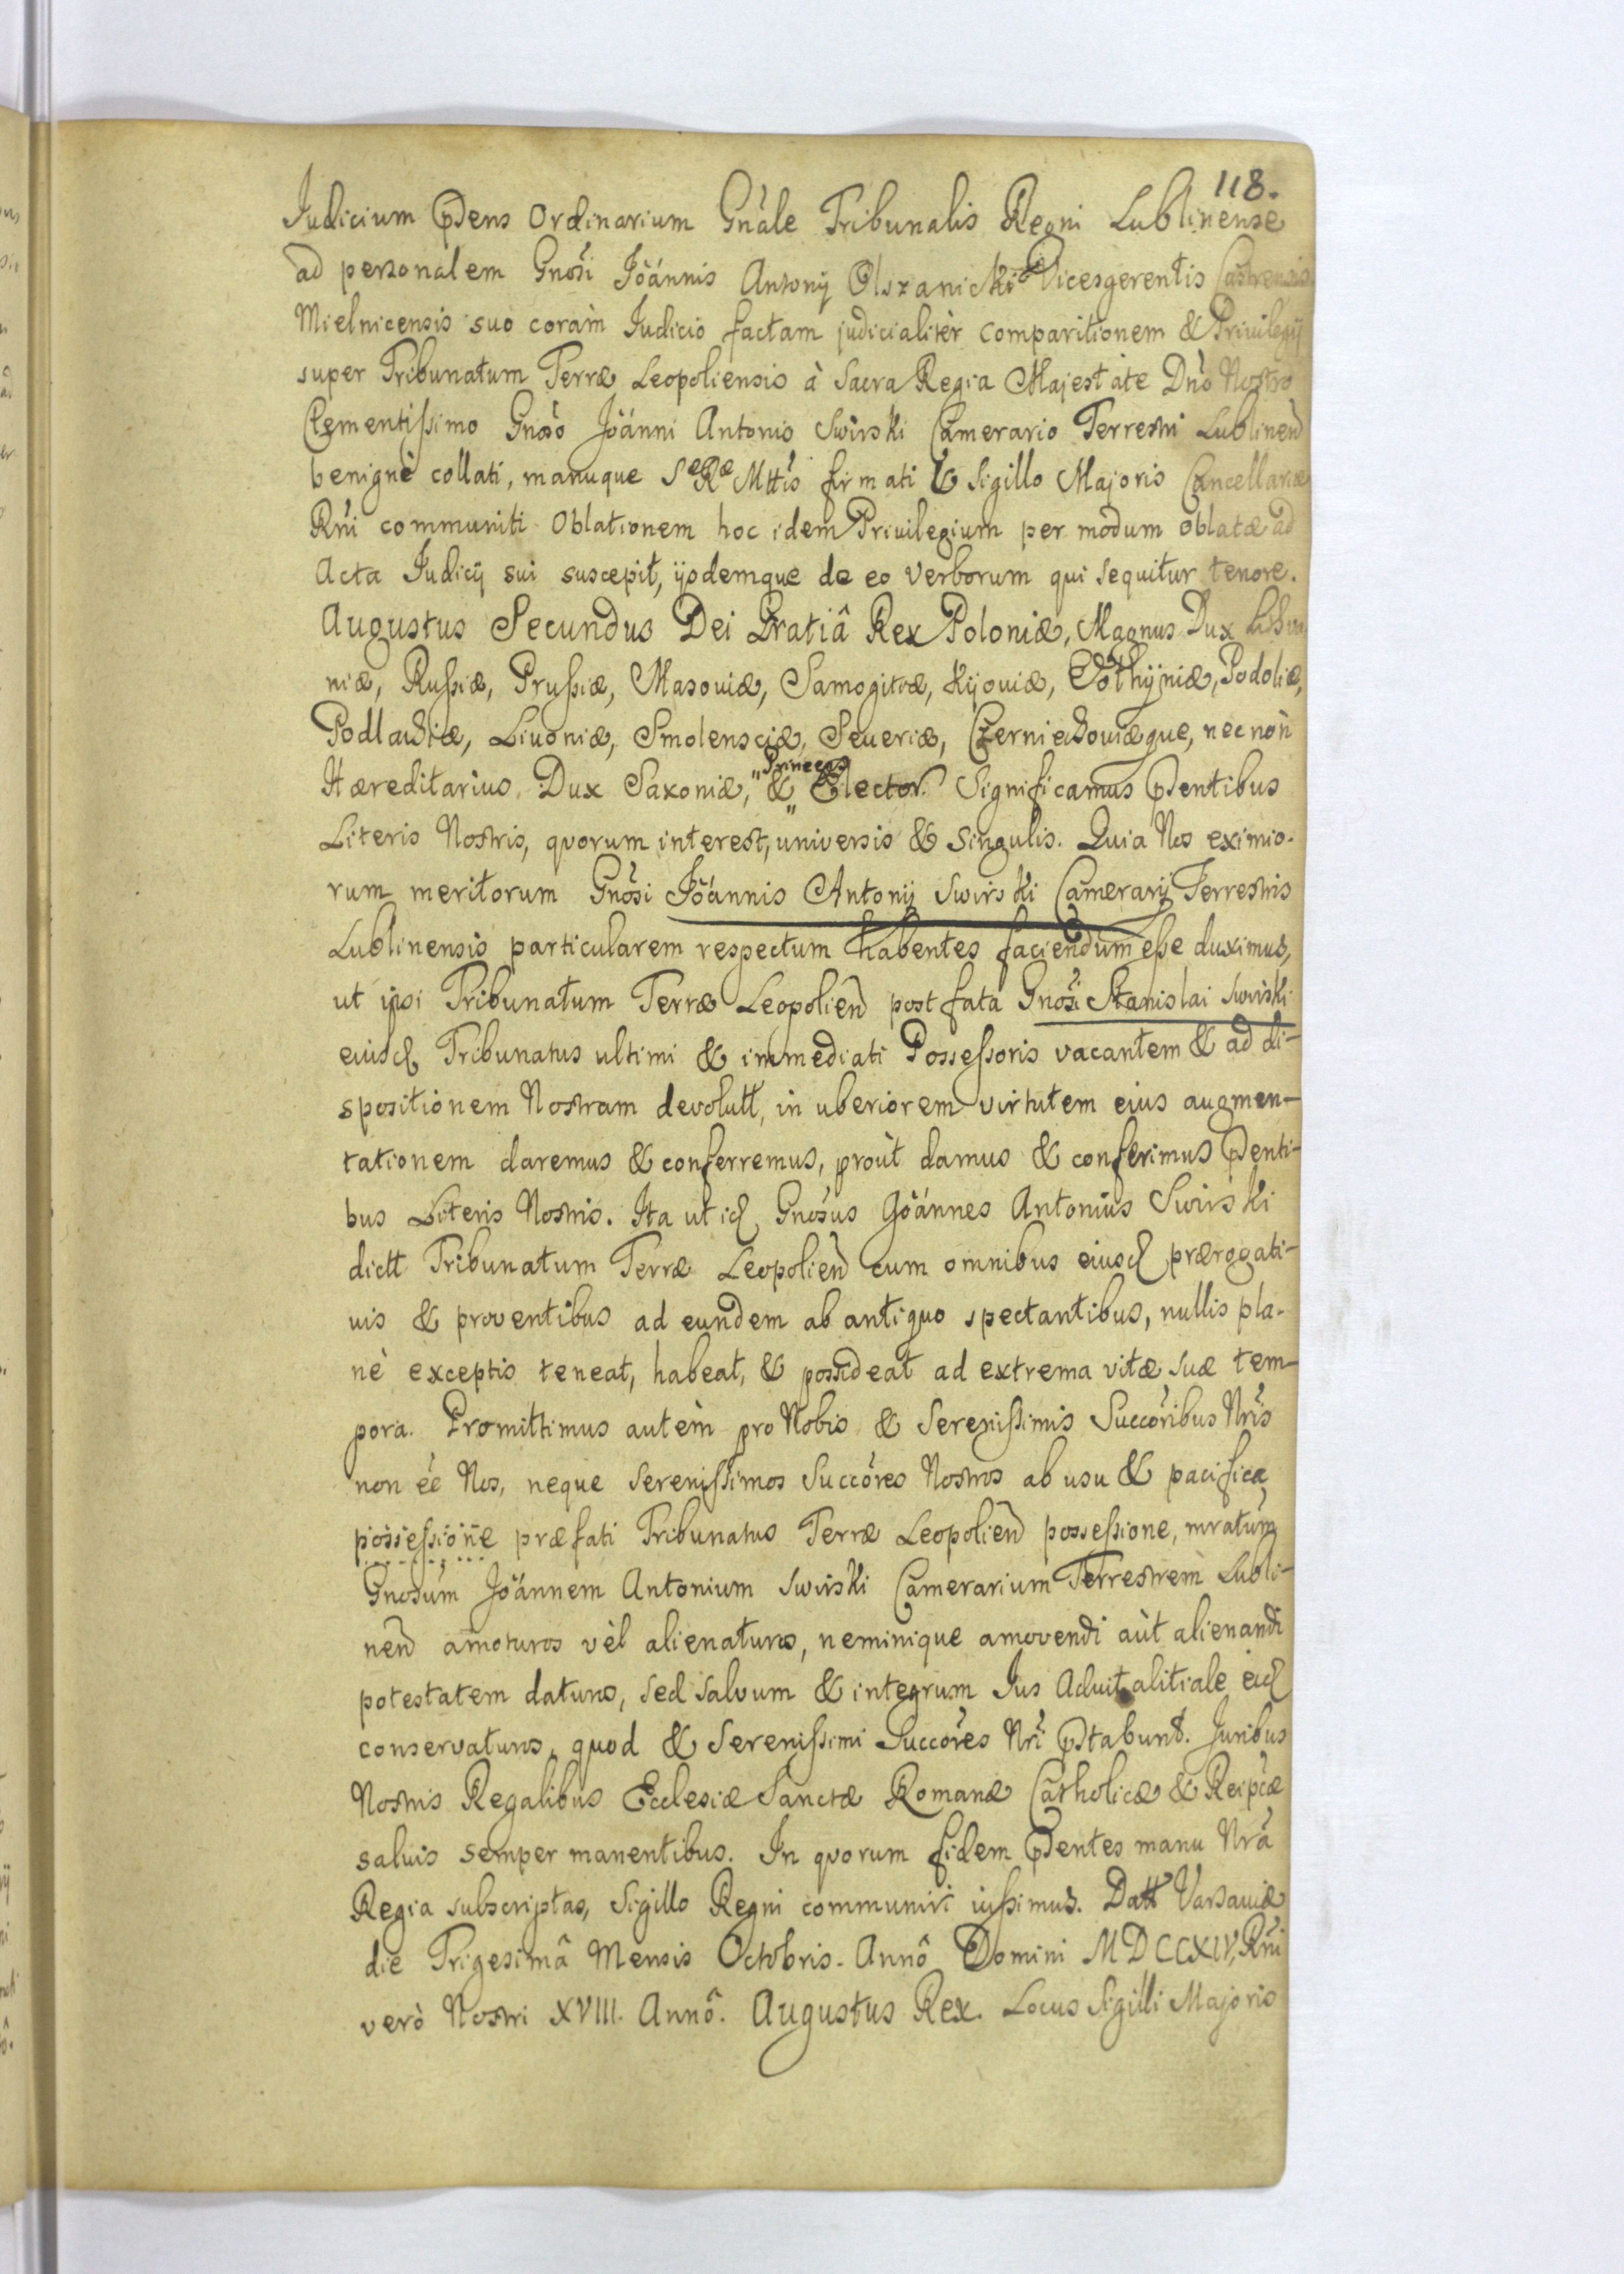 118.
Judicium Pdens Ordinarium Gnâle Tribunalis Regni Lublinense
ad personalem Gnôsi Jôánnis Antonij Olszanicki Vicesgerentis Castrensis
Mielnicensis suo coràm Judicio factam judicialitèr comparitionem & Privilegij
super Tribunatum Terræ Leopoliensis à Sacra Regia Majestate Dnô Nostro
Clementißimo Gnôso Jôánni Antonio Swirski Camerario Terrestri Lublinen͠
benignè collati, manuque Sæ Ræ Mttis firmati & Sigillo Majoris Cancellariæ
Rñi communiti Oblationem hoc idem Privilegium per modum oblatæ ad
Acta Judicij sui suscepit, ijsdemque de eo verborum qui sequitur tenore.
Augustus Secundus Dei Gratiâ Rex Poloniæ, Magnus Dux Lithva-
niæ, Rußiæ, Prußiæ, Masoviæ, Samogitiæ, Kijoviæ, Volhyniæ, Podoliæ,
Podlachiæ, Livoniæ, Smolensciæ, Severiæ, Czerniechoviæque, necnòn
Hæreditarius Dux Saxoniæ, & "Princeps" Elector. Significamus Pdentibus
Literis Nostris, quorum interest, universis & singulis. Quia Nos eximio-
rum meritorum Gnôsi Jôánnis Antonij Swirski Camerarij Terrestris
Lublinensis particularem respectum habentes faciendum eße duximus,
ut ipsi Tribunatum Terræ Leopolien͠ post fata Gnôsi Stanislai Swirski
eiusd̃ Tribunatus ultimi & immediati Posseßoris vacantem & ad di-
spositionem Nostram devolutt, in uberiorem virtutem eius augmen-
tationem daremus & conferremus, proùt damus & conferimus Pdenti-
bus Literis Nostris. Ita ut id̃ Gnôsus Jôánnes Antonius Swirski
dictt Tribunatum Terræ Leopolien͠ cum omnibus eiusd̃ prærogati-
vis & proventibus ad eundem ab antiquo spectantibus, nullis pla-
nè exceptis teneat, habeat, & possideat ad extrema vitæ suæ tem-
pora. Promittimus autèm pro Nobis & Sereniß͏imis Succôribus Nrîs
non êe Nos, neque Serenißimos Succôres Nostros ab usu & pacifica
posseßione præfati Tribunatus Terræ Leopolien͠ posseßione, mratum
Gnosum Jôánnem Antonium Swirski Camerarium Terrestrem Lubli-
nen͠ amoturos vèl alienaturos, neminique amovendi aùt alienandi
potestatem daturos, sed salvum & integrum Jus Advitalitiale eid̃
conservaturos, quod & Serenißimi Succôres Nrî Pstabunt. Juribus
Nostris Regalibus Ecclesiæ Sanctæ Romanæ Catholicæ & Reipcæ
salvis semper manentibus. In quorum fidem Pdentes manu Nrâ
Regia subscriptas, Sigillo Regni communiri iußimus. Datt Varsaviæ
die Trigesimâ Mensis Octobris. Annô Domini MDCCXIV, Rñi
verò Nostri XVIII. Annô. Augustus Rex. Locus Sigilli Majoris